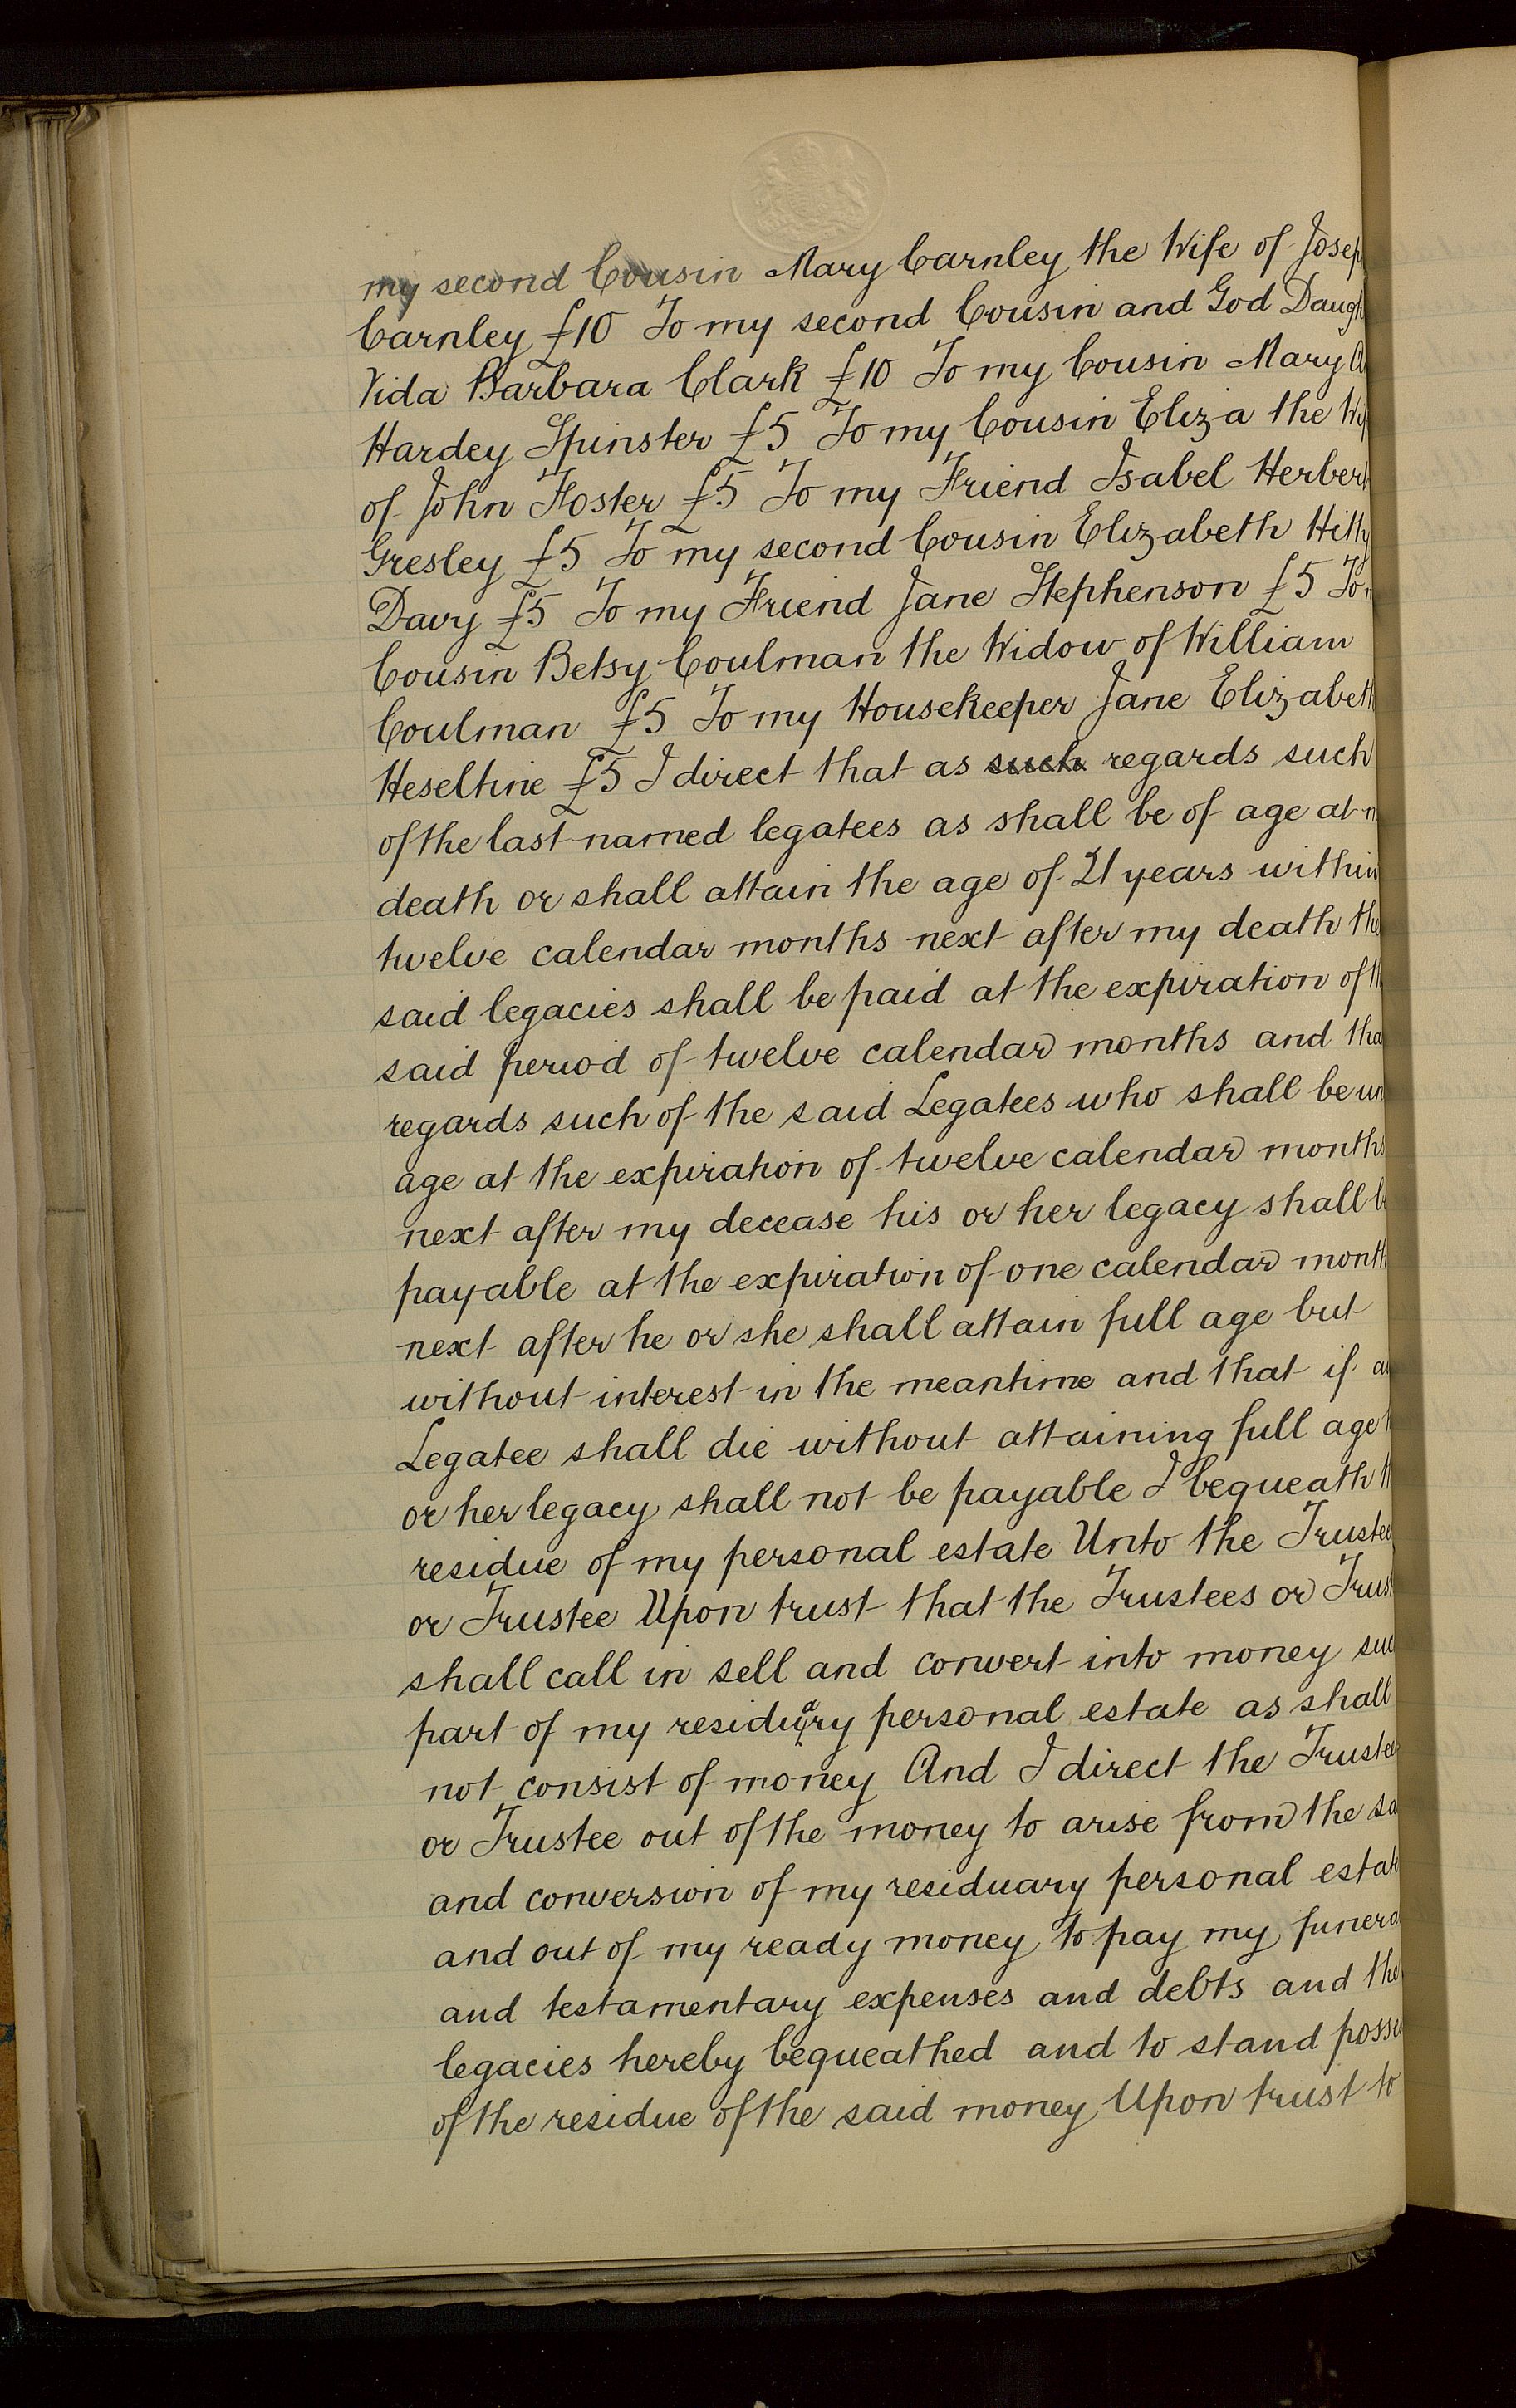 my second Cousin Mary Carnley the Wife of Josep
Carnley £10 To my second Cousin and God Daugh
Vida Barbara Clark £10 To my Cousin Mary A
Hardey Spinster £5 To my Cousin Eliza the Wif
of John Foster £5 To my Friend Isabel Herbert
Gresley £5 To my second Cousin Elizabeth Hitty
Davy £5 To my Friend Jane Stephenson £5 To
Cousin Betsy Coulman the Widow of William
Coulman £5 To my Housekeeper Jane Elizabeth
Heseltine £5 I direct that as such regards such
of the last named legatees as shall be of age at m
death or shall attain the age of 21 years within
twelve calendar months next after my death the
said legacies shall be paid at the expiration of th
said period of twelve calendar months and tha
regards such of the said Legatees who shall be un
age at the expiration of twelve calendar months
next after my decease his or her legacy shall b
payable at the expiration of one calendar month
next after he or she shall attain full age but
without interest in the meantime and that if a
Legatee shall die without attaining full age
or her legacy shall not be payable I bequeath th
residue of my personal estate Unto the Trustee
or Trustee Upon trust that the Trustees or Trust
shall call in sell and convert into money suc
part of my residuary personal estate as shall
not consist of money And I direct the Trustee
or Trustee out of the money to arise from the sa
and conversion of my residuary personal estate
and out of my ready money to pay my funera
and testamentary expenses and debts and the
legacies hereby bequeathed and to stand posse
of the residue of the said money Upon trust to